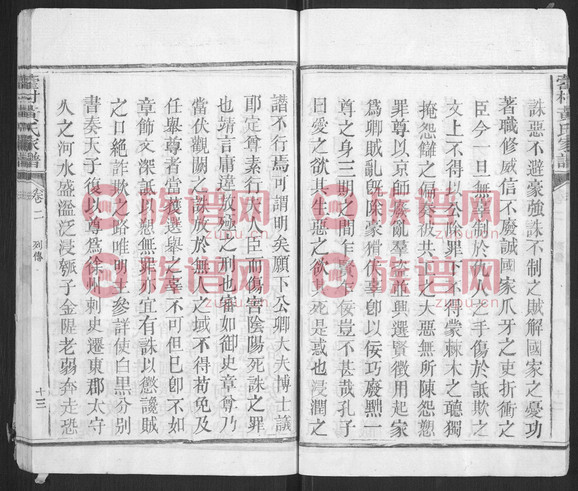 誅惡不避豪強誅不制之賊解國家之憂功
著職修威信不廢誠國家爪牙之吏折衝之
臣今一旦無辜制於仇人之手傷於詆欺之
文上不得以公除罪下不得蒙棘木之聽獨
掩怨讎之偏奏被共工之大惡無所陳怨愬
罪尊以京師廢亂羣盜並興選賢徵用起家
為卿賊亂既除豪猾伏辜卽以佞巧廢黜一
尊之身三期之間乍賢乍佞豈不甚哉孔子
曰愛之欲其生惡之欲其死是惑也浸潤之
譖不行焉可謂明矣願下公卿大夫博士議
耶定尊素行夫人臣而傷害陰陽死誅之罪
也靖言庸違放極之刑也審如御史章尊乃
當伏觀闕之誅放於無人之域不得苟免及
任舉尊者當獲選舉之辜不可但已卽不如
章飾文深詆以愬無罪亦宜有誅以懲讒賊
之口絕詐欺之路唯明主參詳使白黑分別
書奏天子復以尊為徐州刺史遷東郡太守
久之河水盛溢泛浸瓠子金隄老弱奔走恐
黃氏家譜
卷二
列傳
十三
族谱网
zupu.cn